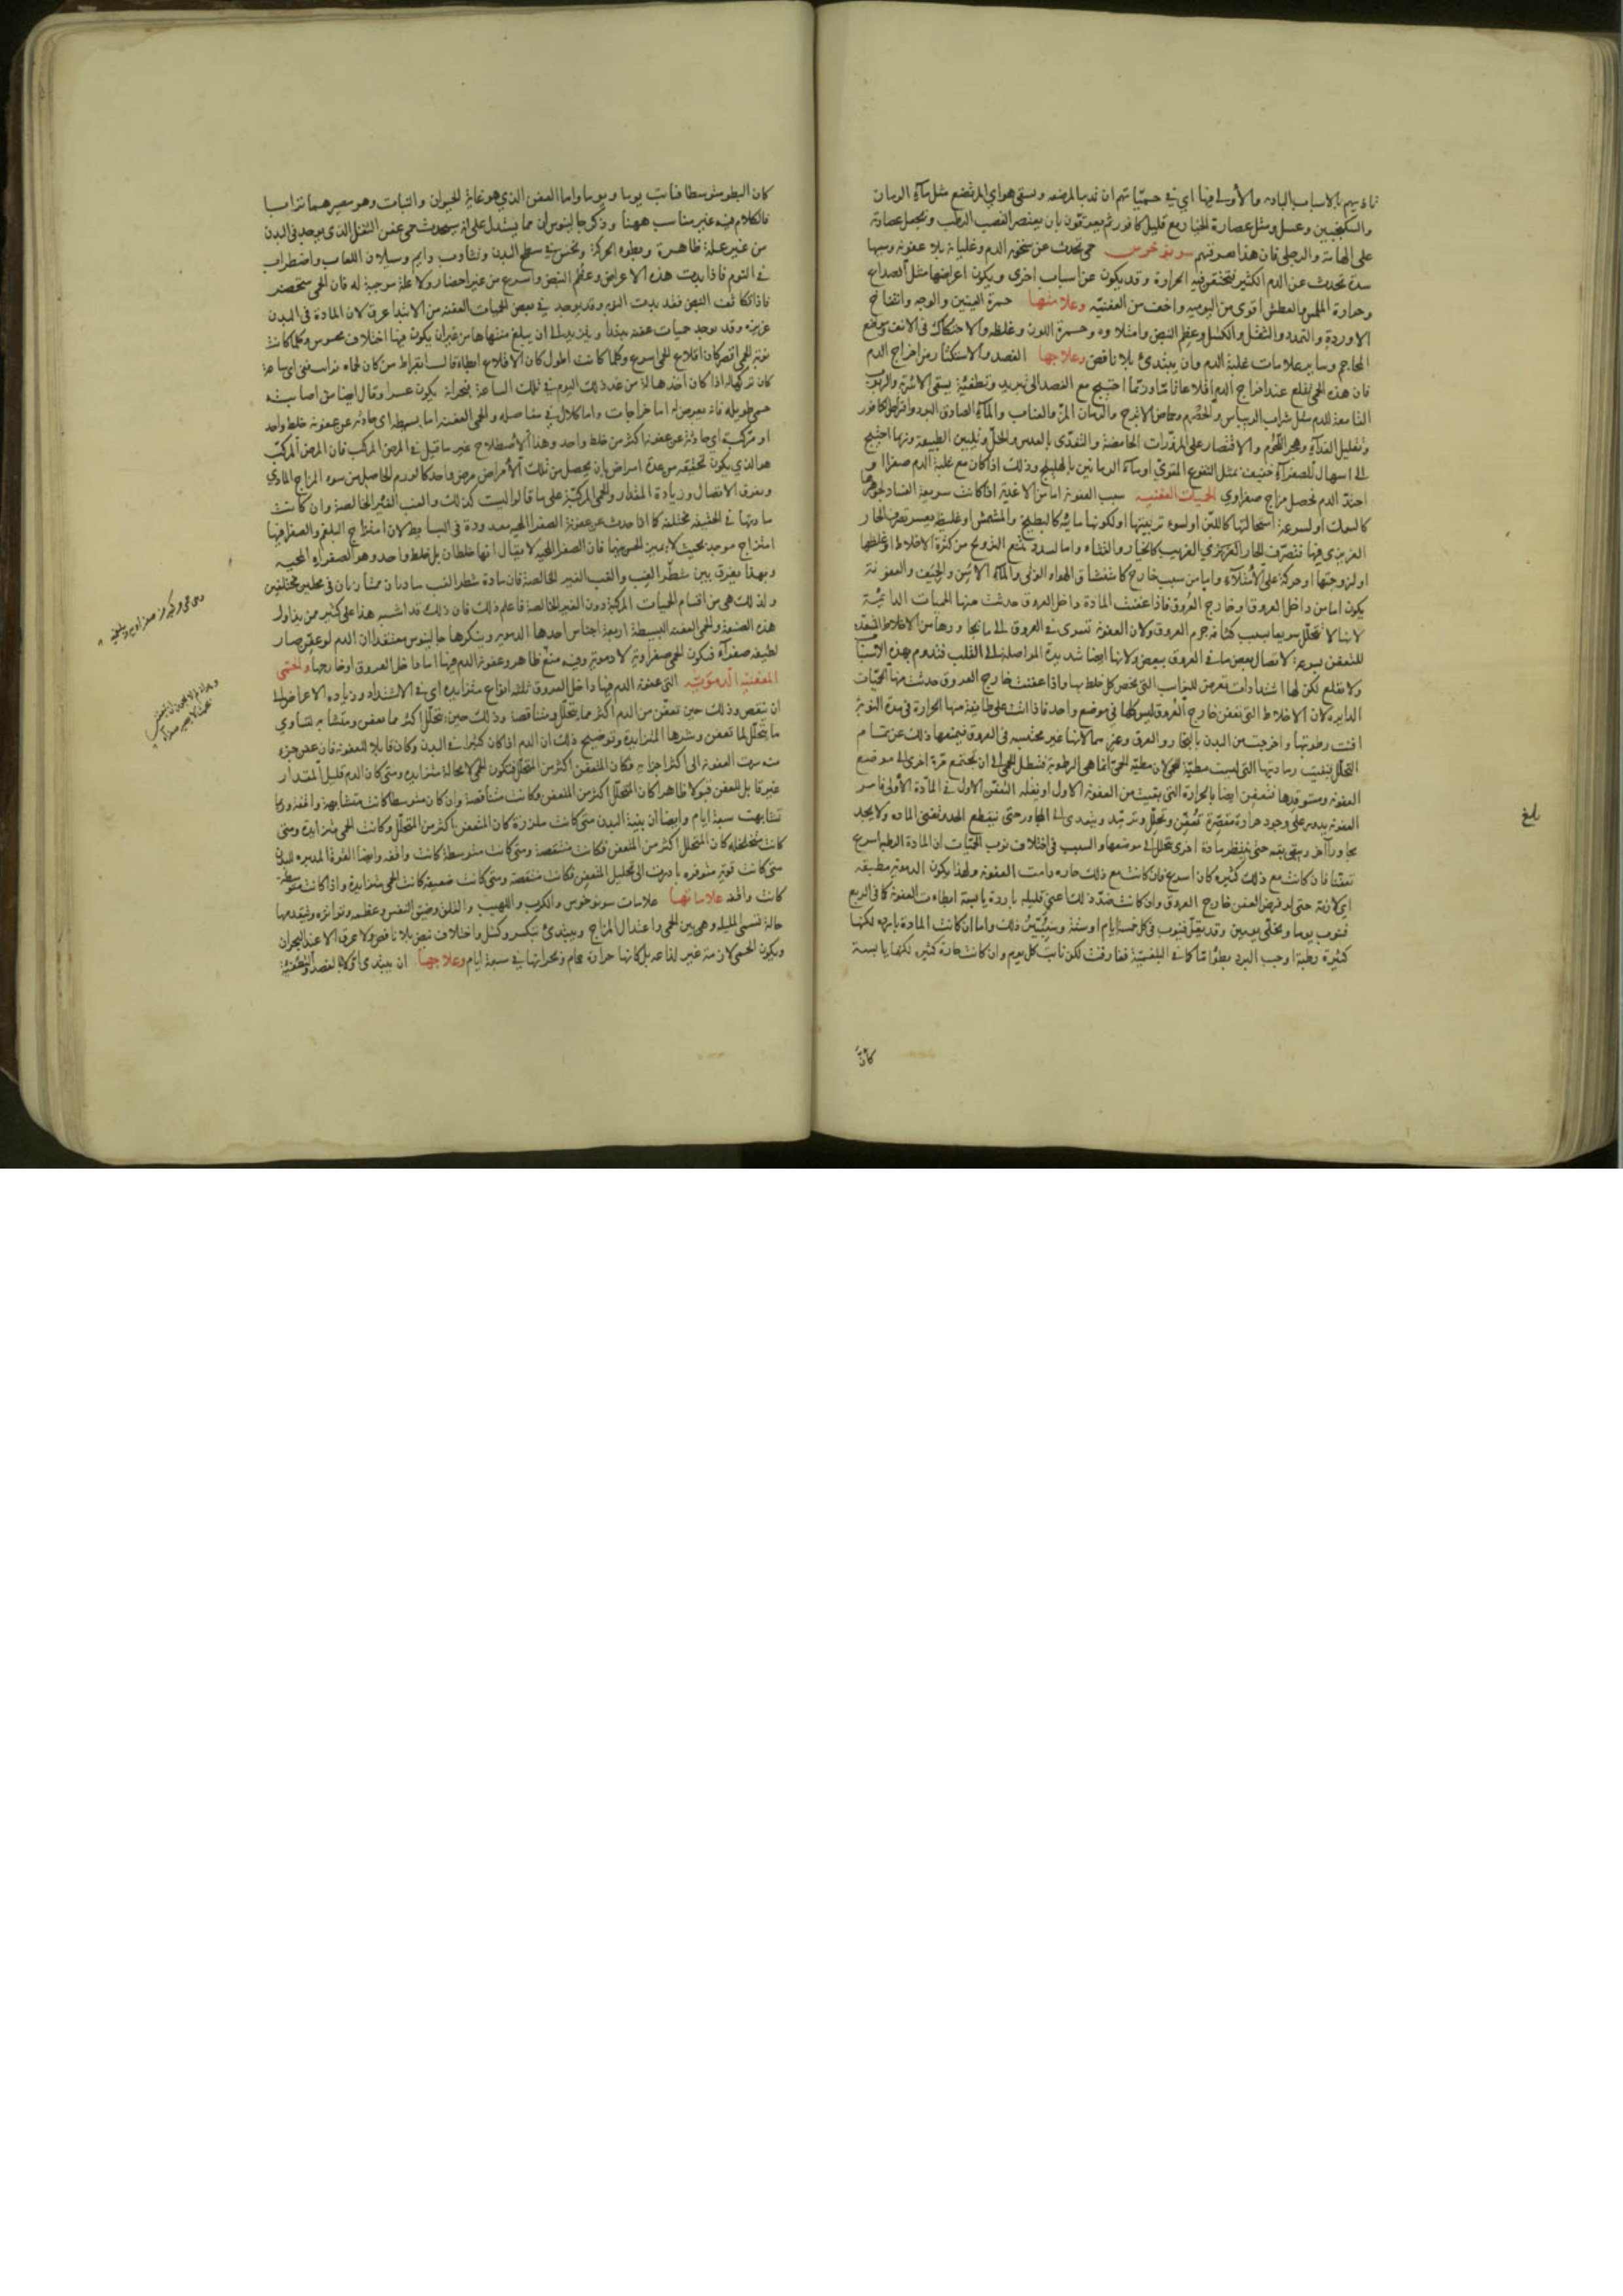 والسكنجبين وعسل ومثل عصارة الخيار مع قليل كافور ثم يعرقون بان
على الهامة والرجلين فان هذا صرفهم سونوخوس حمى تحدث عن سخونة الدم وغليانه بلا عفونة وسببها
سدة تحدث عن الدم الكثير فتختنق فيه الحرارة وقد يكون عن اسباب اخرى ويكون اعراضها مثل الصداع
وحرارة الملمس والعطش اقوى من اليومية واخف من العفنية وعلامتها حمرة العينين والوجه وانتفاخ
الاوردة والتمدد والثقل والكسل وعظم النبض وامتلاوه وحمرة اللون وغلظه والاحتكاك في الانف وموضع
المحاجم وساير علامات غلبة الدم وان يبتدئ بلا نافض وعلاجها الفصد والاستكثار من اخراج الدم
فان هذه الحمى تقلع عند اخراج الدم اقلاعا تاما وربما احتيج مع الفصد الى تبريد وتطفئة بسقي الاشربة والربوب
القامعة للدم مثل شراب الريباس والحصرم وحماض الاترج والرمان المز والعناب والماء الصادق البرد واقراص الكافور
وتقليل الغذاء وهجر اللحوم والاقتصار على المزورات الحامضة والتغذي بالعدس والخل وتليين الطبيعة وربما احتيج
الى اسهال للصفراء خفيف بمثل النقوع المقوي او ماء الرمانين بالهليلج وذلك اذا كان مع غلبة الدم صفرا
احتد الدم فحصل مزاج صفراوي الحميات العفنية سبب العفونة اما من الاغذية اذا كانت سريعة الفساد لجوهرها
كالسمك او لسرعة استحالتها كاللبن او لسوء تربيتها او لكونها مائية كالبطيخ والمشمش او غليظة يعسر تصرف الحار
الغريزي فيها فتصرف الحار الغريزي الغريب كالخيار والقثاء واما لسدد تمنع الترويح من كثرة الاخلاط او غلظها
او لزوجتها او حركة على الامتلاء واما من سبب خارج كاستنشاق الهواء الوبائي والماء الاسن والجيف والعفونة
يكون اما من داخل العروق او خارج العروق فاذا عفنت المادة داخل العروق حدثت منها الحميات الدائمة
لانها لا تتحلل سريعا بسبب كثافة جرم العروق ولان العفونة تسري في العروق الى ما يجاورها من الاخلاط
للتعفن بسرعة لاتصال بعض ما في العروق ببعض ولانها ايضا شديدة المواصلة الى القلب فتدوم بهذه الاسباب
ولا تقلع لكن لها اشتدادات تعرض للنوايب التي تخص كل خلط بها واذا عفنت خارج العروق حدثت منها الحميات
الدايرة لان الاخلاط التي تعفن خارج العروق ليس كلها في موضع واحد فاذا اتت على طائفة منها الحرارة في مدة النوبة
افنت رطوبتها واخرجت من البدن بالبخار والعرق وغيرهما لانها غير محتبسة في العروق فيمنعها ذلك عن تمام
التحلل فبقيت رماديتها التي ليست مطية للحمى لان مطية الحمى انما هي الرطوبة فتبطل الحمى الى ان تجتمع مرة اخرى الى موضع
العفونة ومستوقدها فتعفن ايضا بالحرارة التي بقيت من العفونة الاول او بفعله التعفن الاول في المادة الاولى فامر
العفونة يدور على وجود حرارة مقصرة تعفن وتحلل وترمد ويتعدى الى المجاور حتى ينقطع الحد وتفنى المادة ولا يجد
مجاورا آخر وتبقى بقية حتى تنتظر مادة اخرى تتحلل الى موضعها والسبب في اختلاف نوب الحميات ان المادة الرطبة اسرع
تعفنا فان كانت مع ذلك كثيرة كان اسرع فان كانت مع ذلك حارة دامت العفونة ولهذا يكون الدموية مطبقة
اي لازمة حتى لو فرض العفن خارج العروق وان كانت ضد ذلك اعني قليلة باردة يابسة ابطات العفونة كما في الربع
فتنوب يوما وتخلي يومين وقد يقل فتنوب في كل خمسة ايام او ستة وسنبين ذلك واما ان كانت المادة باردة لكنها
كثيرة رطبة اوجب البرد بطوا ما كما في البلغمية ففارقت لكن نابت كل يوم وان كانت حارة كثيرة لكنها يابسة
كان
بلغ
كان البطو متوسطا فنابت يوما ويوما واما العفن الذي هو غاية الحيوان والنبات وهو مصيرهما ترابا
فالكلام فيه غير مناسب ههنا وذكر جالينوس ان مما يستدل على انه سيحدث حمى عفن الثقل الذي يوجد في البدن
من غير علة ظاهرة وبطوء الحركة ونخس في سطح البدن وتثاوب دايم وسيلان اللعاب واضطراب
في النوم فاذا بدت هذه الاعراض وعظم النبض واسرع من غير احضار ولا علة موجبة له فان الحمى ستحضر
فاذا تكاثف النبض فقد بدت النوبة وقد يوجد في بعض الحميات العفنة من الابتدا عرق لان المادة في البدن
غزيرة وقد يوجد حميات عفنة يبتدا ويتزيد الى ان يبلغ منتهاها من غير ان يكون فيها اختلاف محسوس وكلما كانت
نوبة الحمى اقصر كان اقلاع الحمى اسرع وكلما كانت اطول كان الاقلاع ابطأ قال ابقراط من كان لحماه نوايب ففي اي ساعة
كان تركها له اذا كان اخذها له من غد ذلك اليوم في تلك الساعة بعينها فبحرانه يكون عسرا وقال ايضا من اصابته
حمى طويلة فانه يعرض له اما خراجات واما كلال في مفاصله والحمى العفنة اما بسيطة اي حادثة عن عفونة خلط واحد
او مركبة اي حادثة عن عفونة اكثر من خلط واحد وهذا الاصطلاح غير ما قيل في المرض المركب فان المرض المركب
هو الذي يكون تحققه من عدة امراض بان يحصل من تلك الأمراض مرض واحد كالورم الحاصل من سوء المزاج المادي
وتفرق الاتصال وزيادة المقدار والحمى المركبة على ما قالوا ليست كذلك والغب الغير الخالصة وان كانت
مادتها في الحقيقة مختلفة كما اذا حدثت عن عفونة الصفرا المحية معدودة في البسايط لان امتزاج البلغم والصفرا فيها
امتزاج موحد بحيث لا يميز الحس بينهما فان الصفرا المحية لا يقال انها خلطان بل خلط واحد وهو الصفراء المحية
وبهذا يفرق بين شطر الغب والغب الغير الخالصة فان مادة شطر الغب مادتان ممتازتان في محلين مختلفين
ولذلك هي من اقسام الحميات المركبة دون الغير الخالصة فاعلم ذلك فان ذلك قد اشتبه هذا على كثير ممن يداول
هذه الصنعة والحمى العفنة البسيطة اربعة اجناس احدها الدموية وينكرها جالينوس معتقدا ان الدم لو عفن صار
لطيفه صفراء فتكون الحمى صفراوية لا دموية وفيه منع ظاهر وعفونة الدم فيها اما داخل العروق او خارجها والحمى
العفنية الدموية التي عفونة الدم فيها داخل العروق ثلثة انواع متزايدة اي في الاشتداد وزيادة الاعراض الى
ان تنقص وذلك حين تعفن من الدم اكثر مما يتحلل ومتناقصة وذلك حين يتحلل اكثر مما تعفن ومتشابهة لتساوي
ما يتحلل لما تعفن وشرها المتزايدة وتوضيح ذلك ان الدم اذا كان كثيرا في البدن وكان قابلا للعفونة فان عفن جزء
منه سرت العفونة الى اكثر اجزائه فكان المتعفن اكثر من المتحلل فتكون الحمى لا محالة متزايدة ومتى كان الدم قليل المقدار
غير قابل للتعفن قبولا ظاهرا كان المتحلل اكثر من المتعفن فكانت متناقصة وان كان متوسطا كانت متشابهة واقفة وربما
تشابهت سبعة ايام وايضا ان بنية البدن متى كانت ملززة كان المتعفن اكثر من المتحلل وكانت الحمى متزايدة ومتى
كانت متخلخلة كان المتحلل اكثر من المتعفن فكانت متنقصة ومتى كانت متوسطة كانت واقفة وايضا القوة المدبرة للبدن
متى كانت قوية متوفرة بادرت الى تحليل المتعفن فكانت منتقصة ومتى كانت ضعيفة كانت الحمى متزايدة واذا كانت متوسطة
كانت واقفة علاماتها علامات سونوخوس والكرب واللهيب والقلق وضيق النفس وعظمه وتواتره ويتقدمها
حالة تسمى المليلة وهي بين الحمى واعتدال المزاج ويبتدئ بتكسر وكسل واختلاف نبض بلا نافض ولا عرق الا عند البحران
ويكون الحمى لازمة غير لذاعة بل كانها حرارة حمام وبحرانها في سبعة ايام وعلاجها ان يبتدى اولا بالفصد والتطفئة